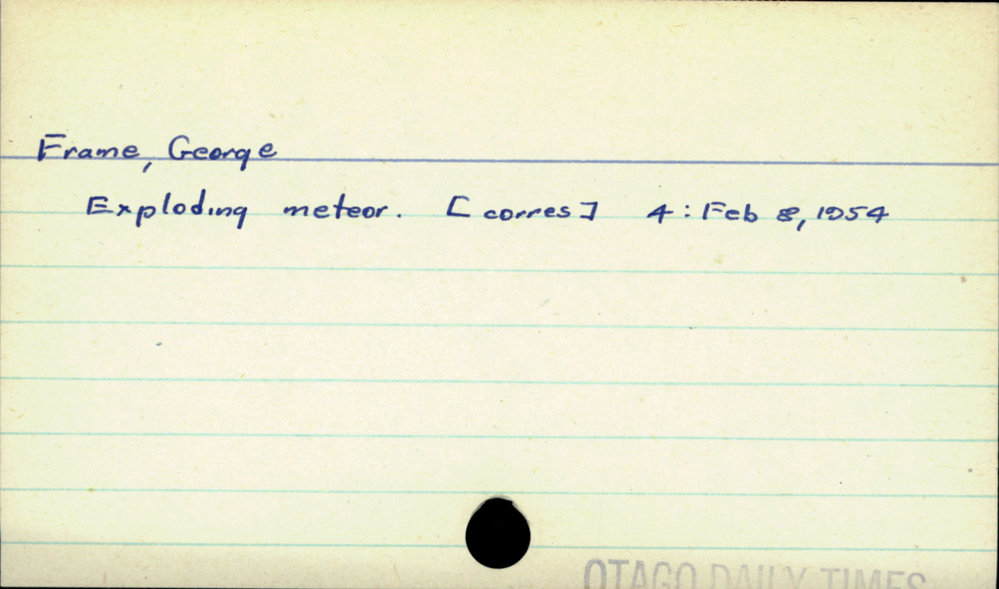 Frame, George
Exploding meteor. [corres] 4: Feb 8, 1954
OTAGO DAILY TIMES